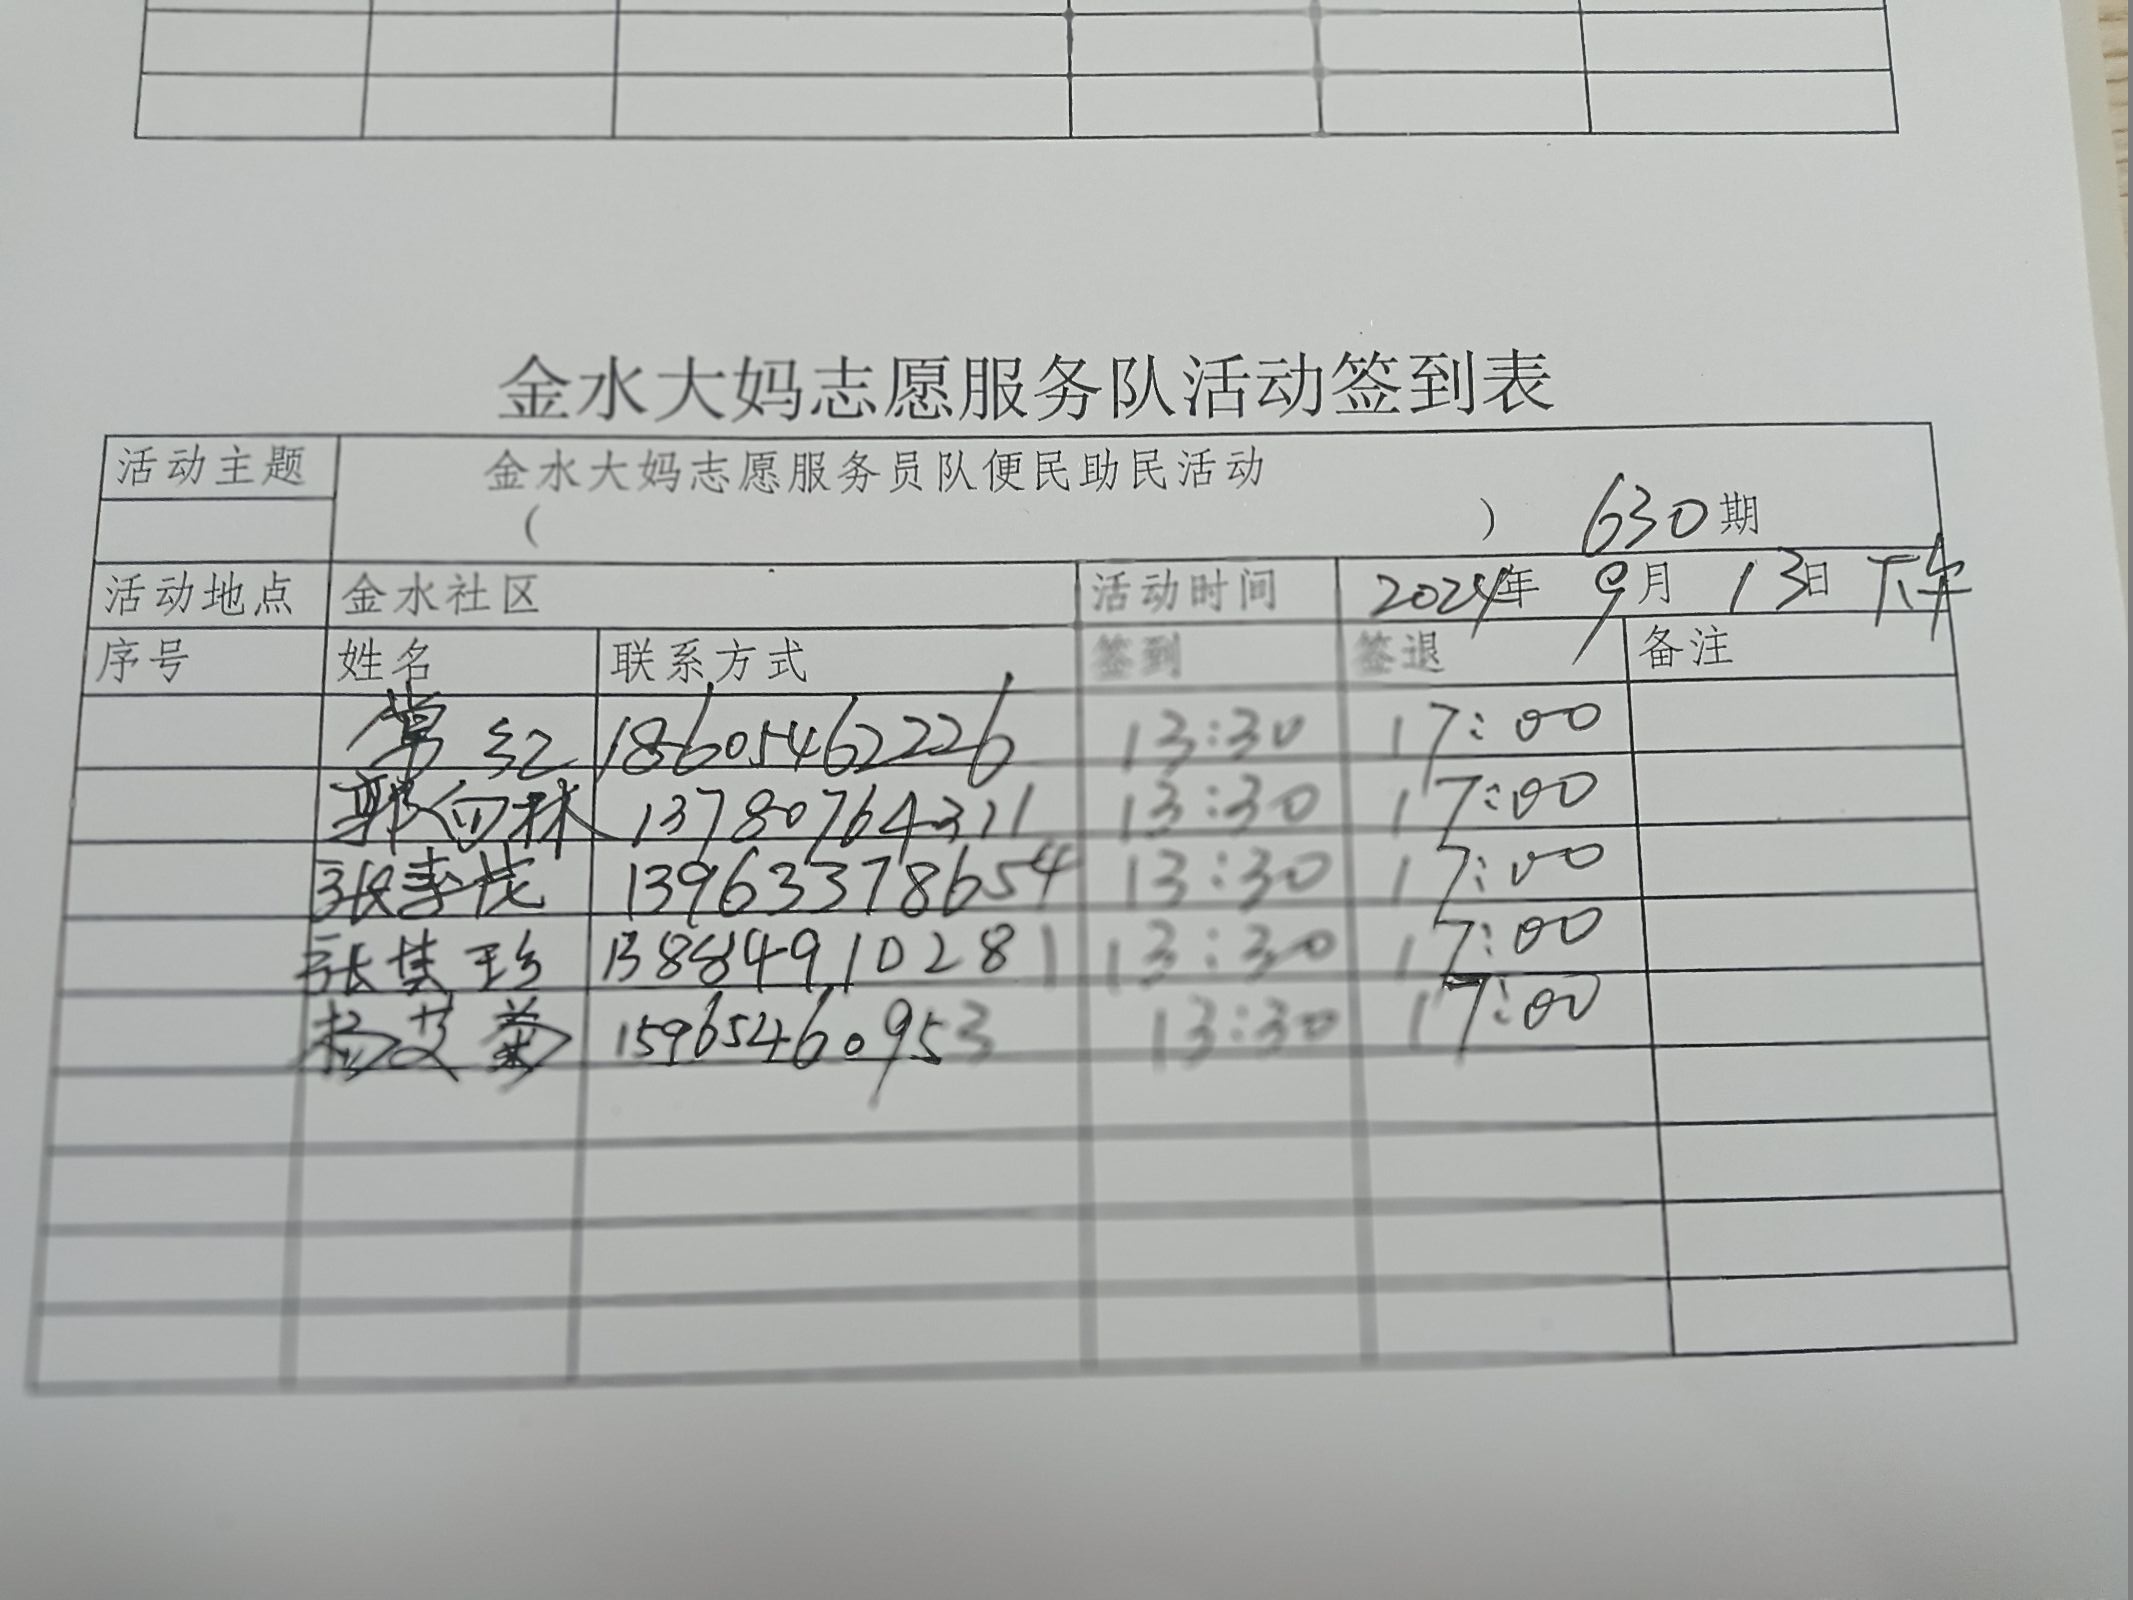 金水大妈志愿服务队活动签到表
活动主题 金水大妈志愿服务员队便民助民活动
( ) 630期
活动地点 金水社区 活动时间 2024年 9月 13日 下午
序号 姓名 联系方式 签到 签退 备注
常红 18605462226 13:30 17:00
郭向林 13780764311 13:30 17:00
张春茂 13963378654 13:30 17:00
张其珍 13884910281 13:30 17:00
杨艾菊 15965460953 13:30 17:00